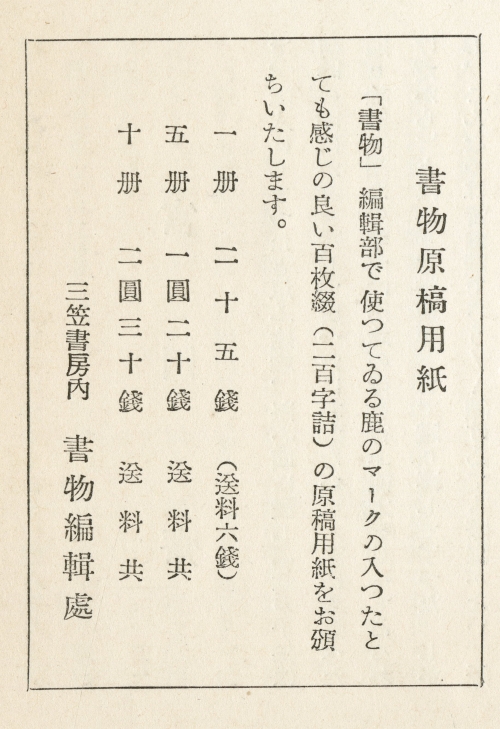 書物原稿用紙
「書物」編輯部で使つてゐる鹿のマークの入つたと
ても感じの良い百枚綴(二百字詰)の原稿用紙をお頒
ちいたします。
一册 二十五錢 (送料六錢)
五册 一圓二十錢 送料共
十册 二圓三十錢 送料共
三笠書房內 書物編輯處